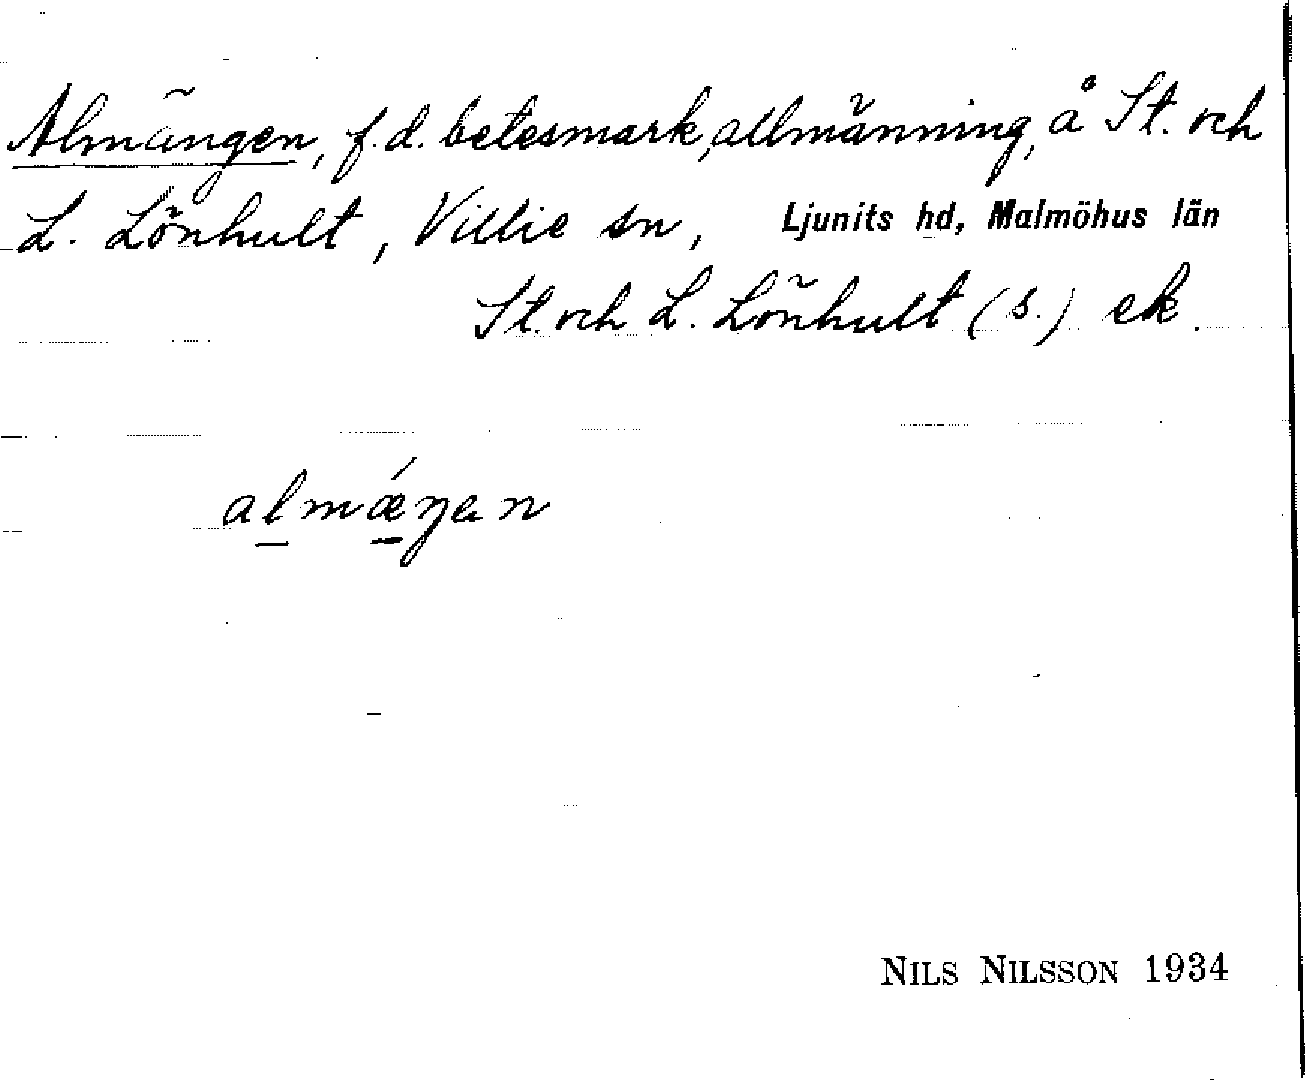 Almängen, f.d. betesmark, allmänning, å St. och
L. Lönhult, Villie sn, Ljunits hd, Malmöhus län
St. och L. Lönhult (s.) ek.
almǽŋan
NILS NILSSON 1934